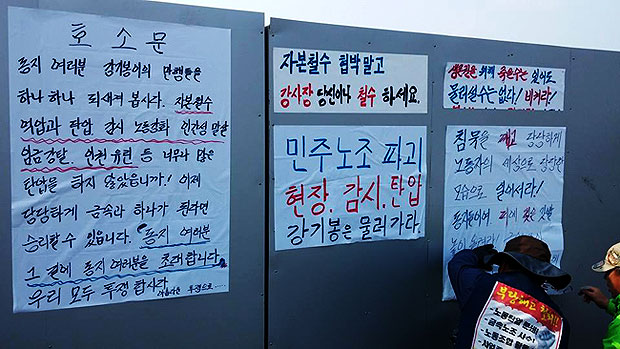 호소문
동지 여러분 강기봉이의 만행들은
하나 하나 되새겨 봅시다. 자본철수
역압과 탄압. 감시 노동강화 인간성 말살
임금강탈. 인권유린 등 너무나 많은
탄압을 하지 않았습니까! 이제
당당하게 금속과 하나가 된다면
승리할수 있습니다. 동지 여러분
그 길에 동지여러분을 초대합니다.
우리 모두 투쟁합시다
아름다운 투쟁으로...
자본철수 협박말고
강시장 당신이나 철수 하세요.
민주노조 파괴
현장. 감시. 탄압
강기봉은 물러가라.
생존권을 위해 죽을수는 있어도
물러설수는 없다! 비켜라!
침묵을 깨고 당당하게
노동자의 세상으로 당당한
모습으로 열어서라!
동지들이여
부당해고
금속노조 사수
노동조합